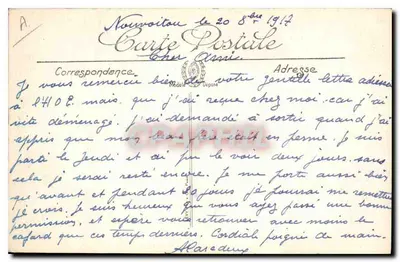 Nouvoitou le 20 8bre 1917
Carte Postale
Cher Ami
Correspondance Adresse
Je vous remercie bien de votre gentille lettre adressée
à l'HOE. mais que j'ai reçue chez moi car j'ai
vite déménagé. J'ai demandé à sortir quand j'ai
appris que mon était en perme. Je suis
parti le Jeudi et ai pu le voir deux jours. sans
cela je serai resté encore. Je me porte aussi bien
qu'avant et pendant 20 jours je pourrai me remettre
je crois. Je suis heureux que vous ayez passé une bonne
permission, et espère vous retrouver avec moins de
cafard que ces temps derniers. Cordiale poignée de main.